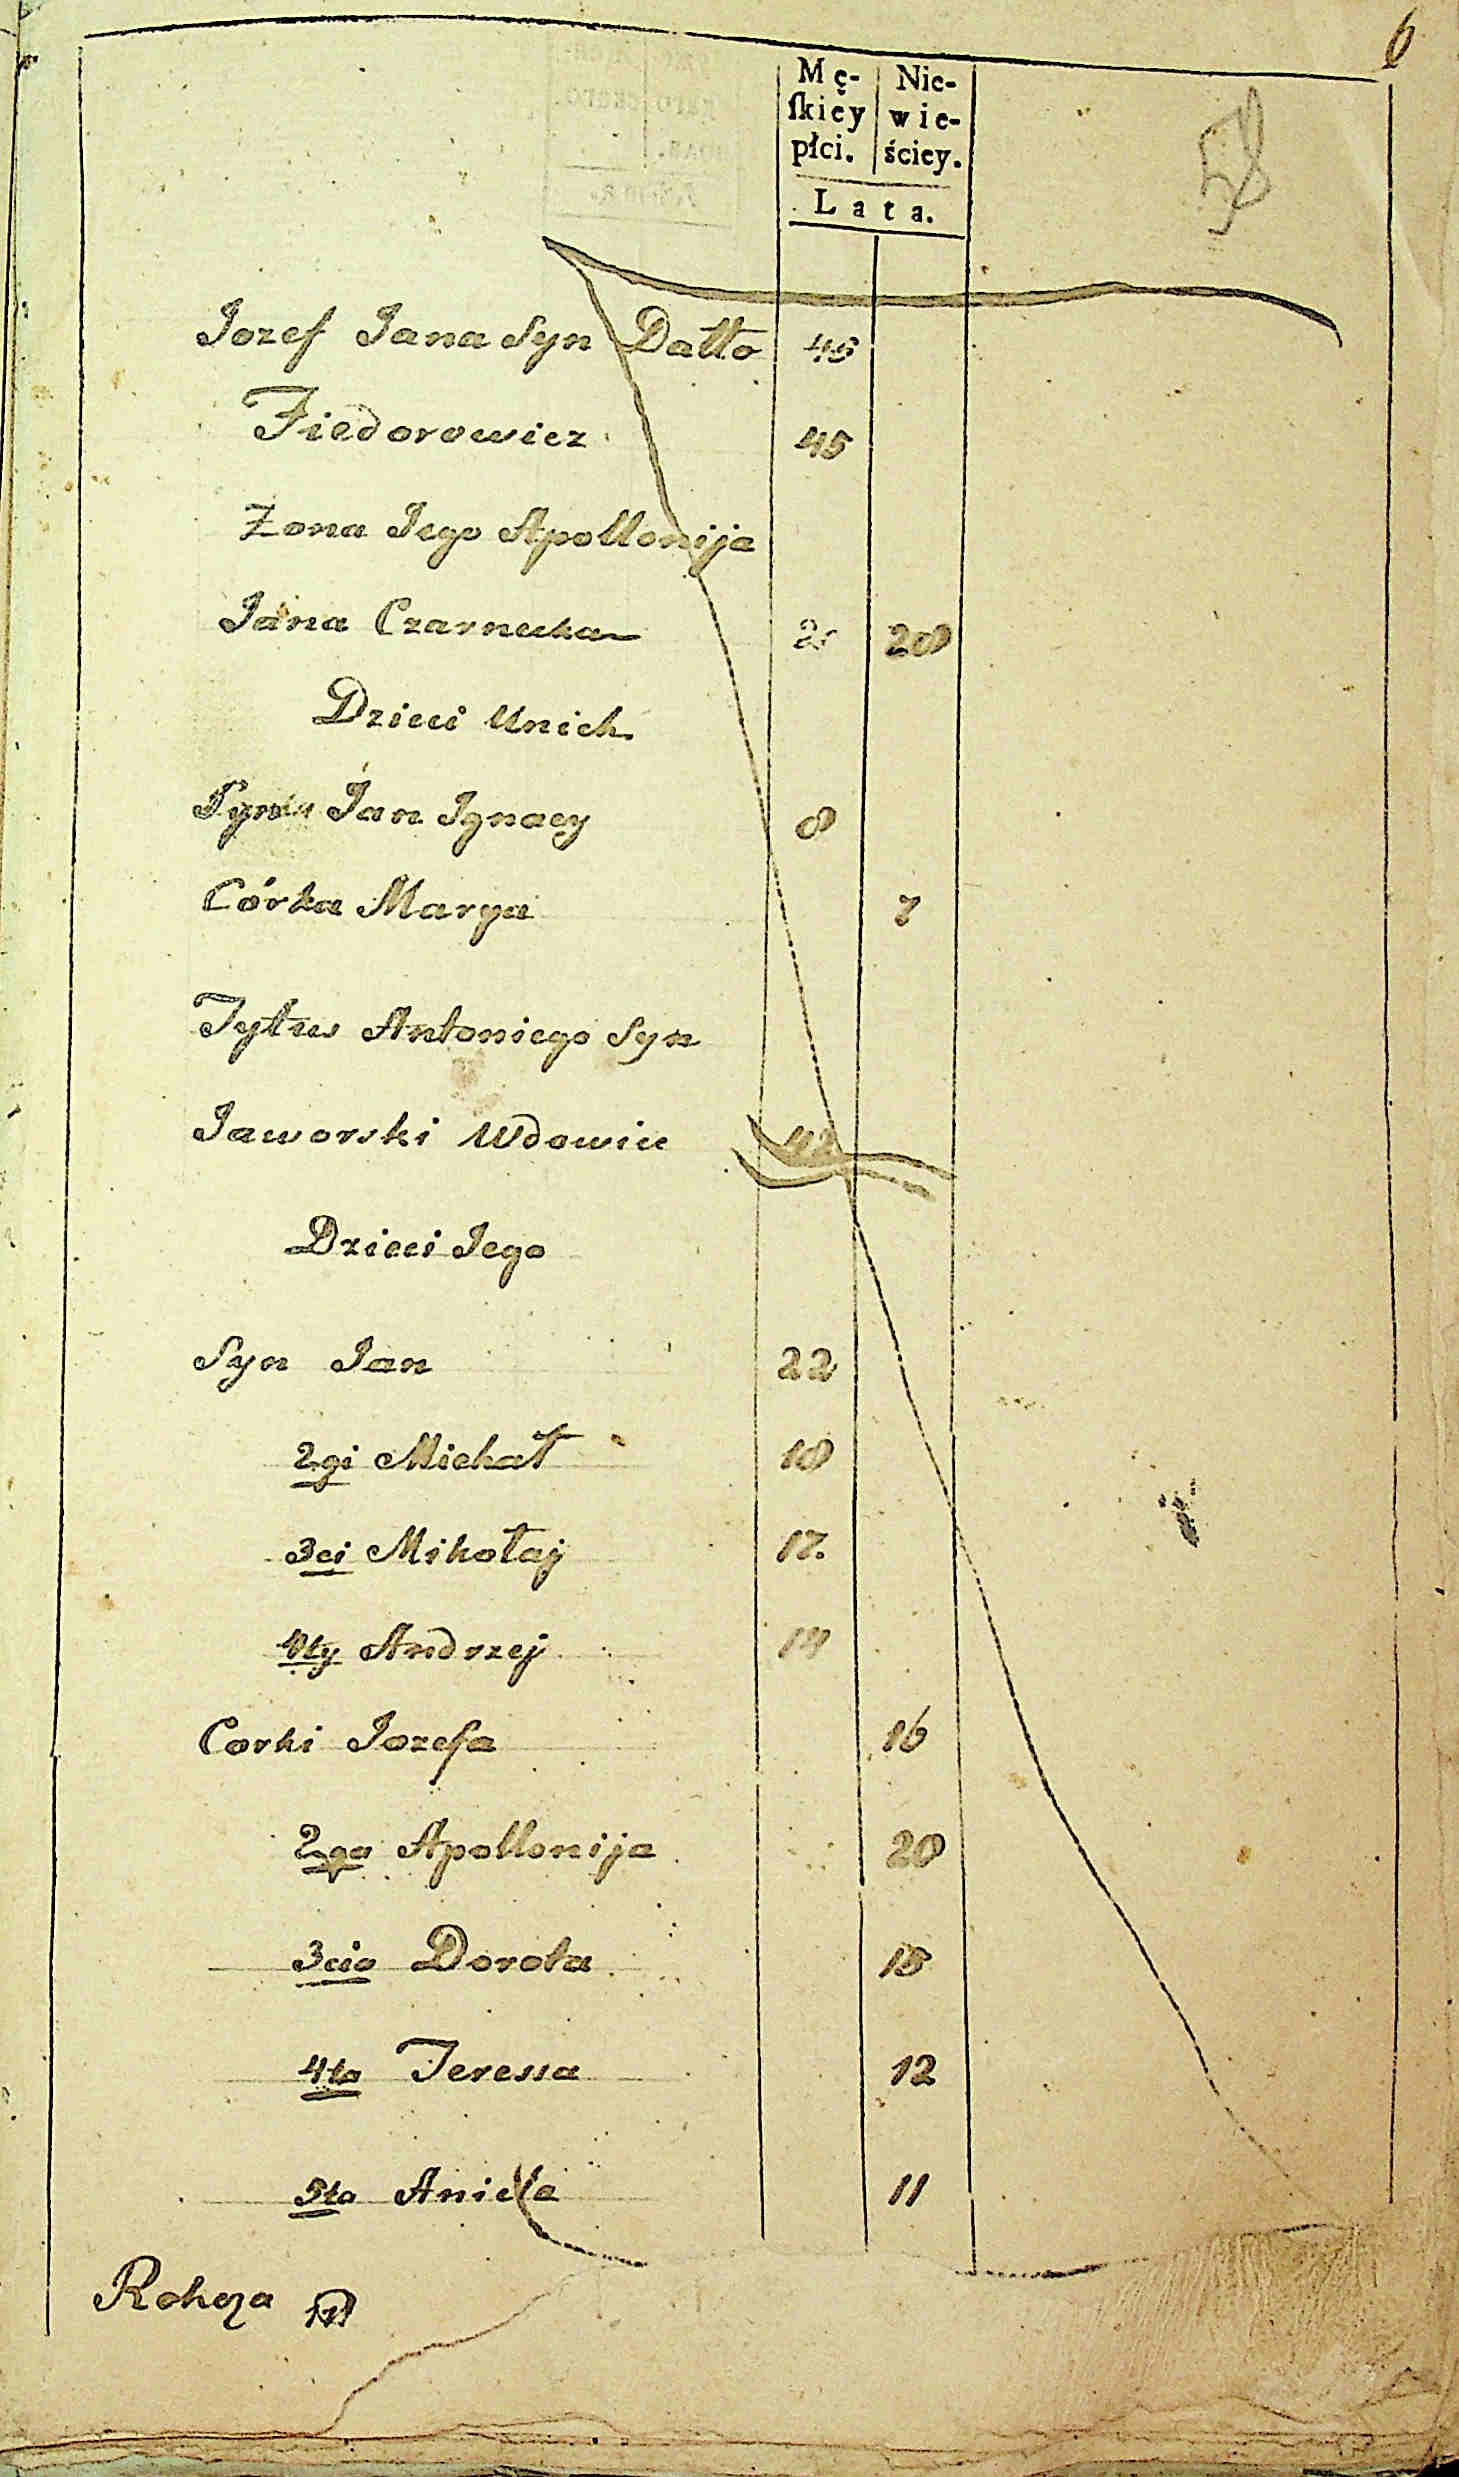 6
Mę- Nie-
ſkiey wie-
płci. ściey.
Lata.
58
Jozef Jana Syn Datto 45
Fiedorowicz 45
Zona Jego Apollonija
Jana Czarnecka 28
Dzieci Unich
Syn Jan Ignacy 8
Córka Marya 7
Tytus Antoniego Syn
Jaworski Wdowiec 42
Dzieci Jego
Syn Jan 22
2gi Michał 18
3ci Mikołaj 17.
4ty Andrzej 14
Corki Jozefa 16
2ga Apollonija 20
3cia Dorota 15
4ta Teressa 12
5ta Aniela 11